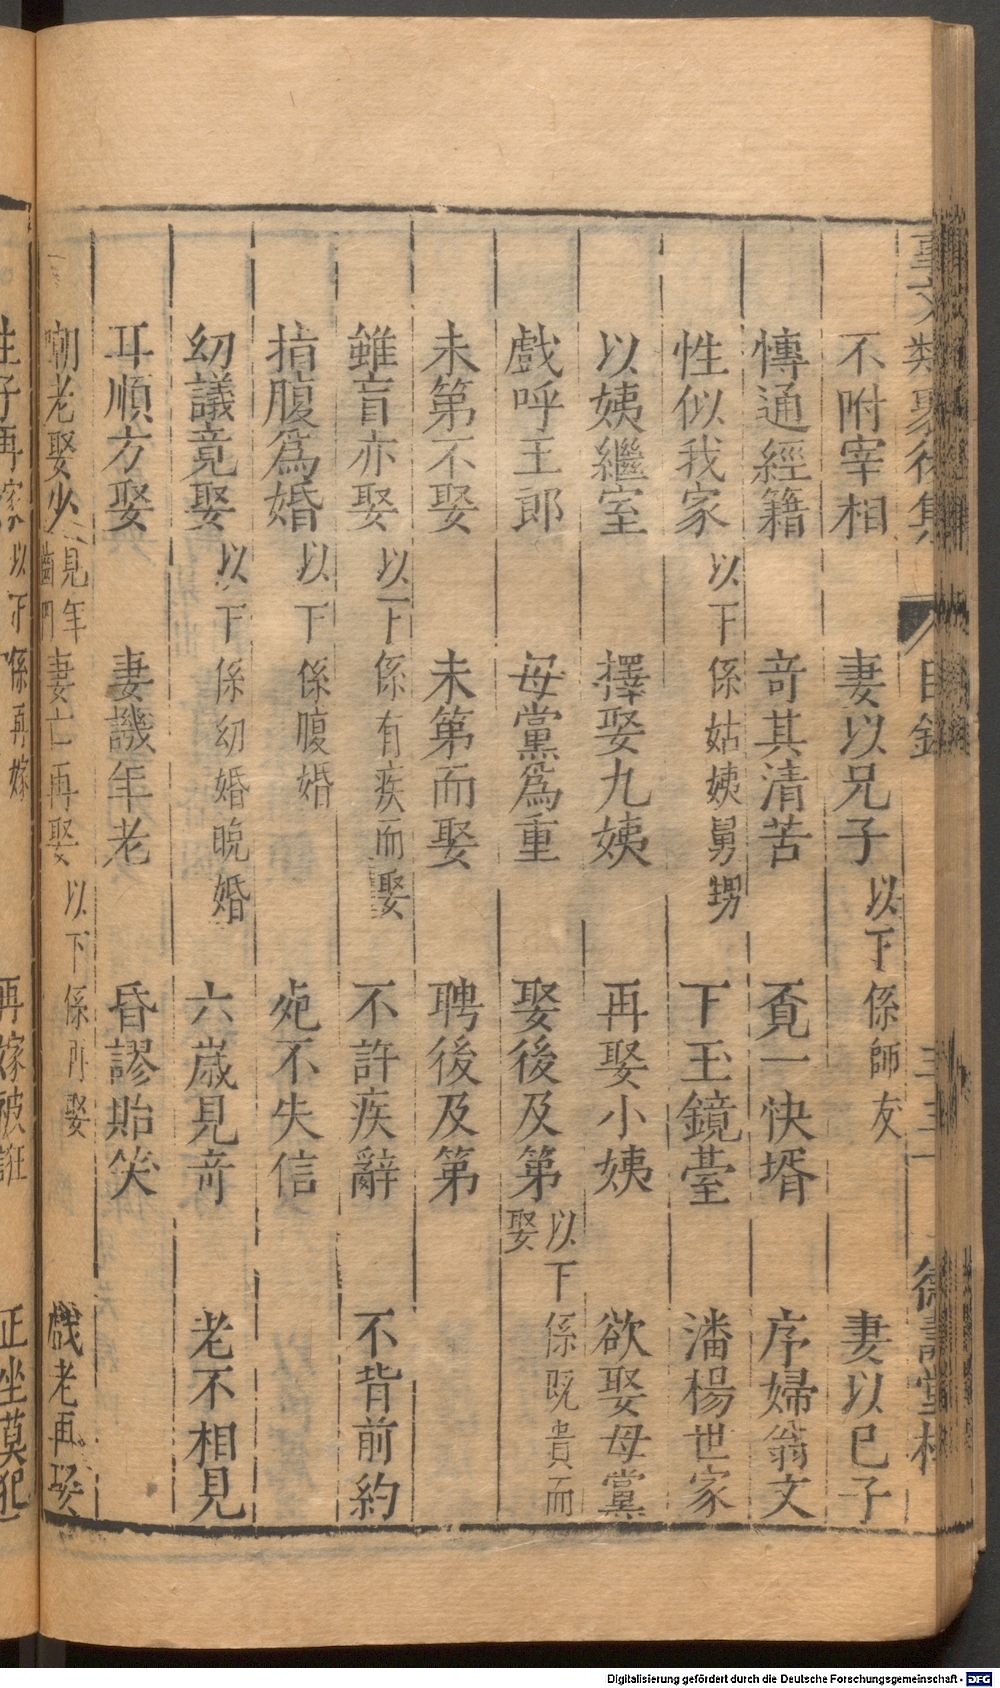 事文類聚後集 目錄 三十一 德壽堂梓
不附宰相 妻以兄子 以下係師友 妻以已子
博通經籍 竒其清苦 覓一快壻 序婦翁文
性似我家 以下係姑姨舅甥 下玉鏡臺 潘楊世家
以姨繼室 擇娶九姨 再娶小姨 欲娶母黨
戲呼王郎 母黨爲重 娶後及第 以下係既貴而娶
未第不娶 未第而娶 聘後及第
雖盲亦娶 以下係有疾而娶 不許疾辭 不背前約
指腹爲婚 以下係腹婚 兊不失信
幼議竟娶 以下係幼婚晚婚 六歲見竒 老不相見
耳順方娶 妻譏年老 昏謬貽笑
嘲老娶少 見年齒門 妻亡再娶 以下係再娶 戲老再娶
性子再嫁 以下係再嫁 再嫁被誑 正坐莫犯
Digitalisierung gefördert durch die Deutsche Forschungsgemeinschaft - DFG